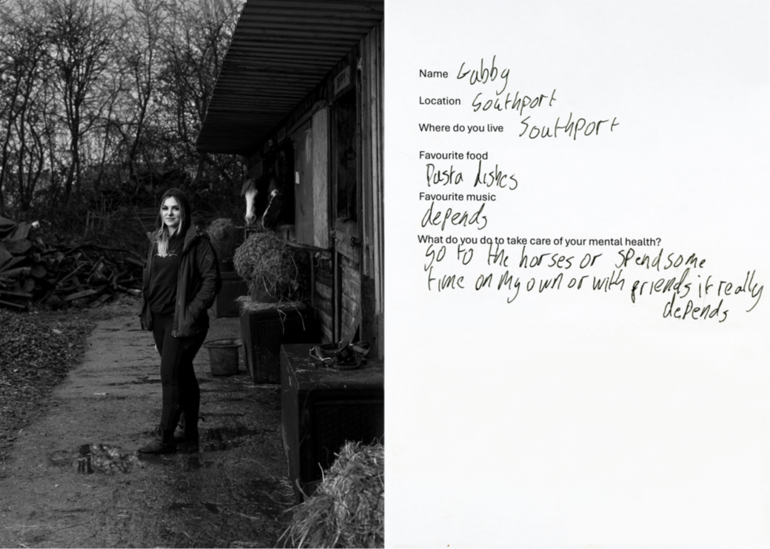 Name Gabby
Location Southport
Where do you live Southport
Favourite food
Pasta dishes
Favourite music
depends
What do you do to take care of your mental health?
go to the horses or spend some
time on my own or with friends it really
depends